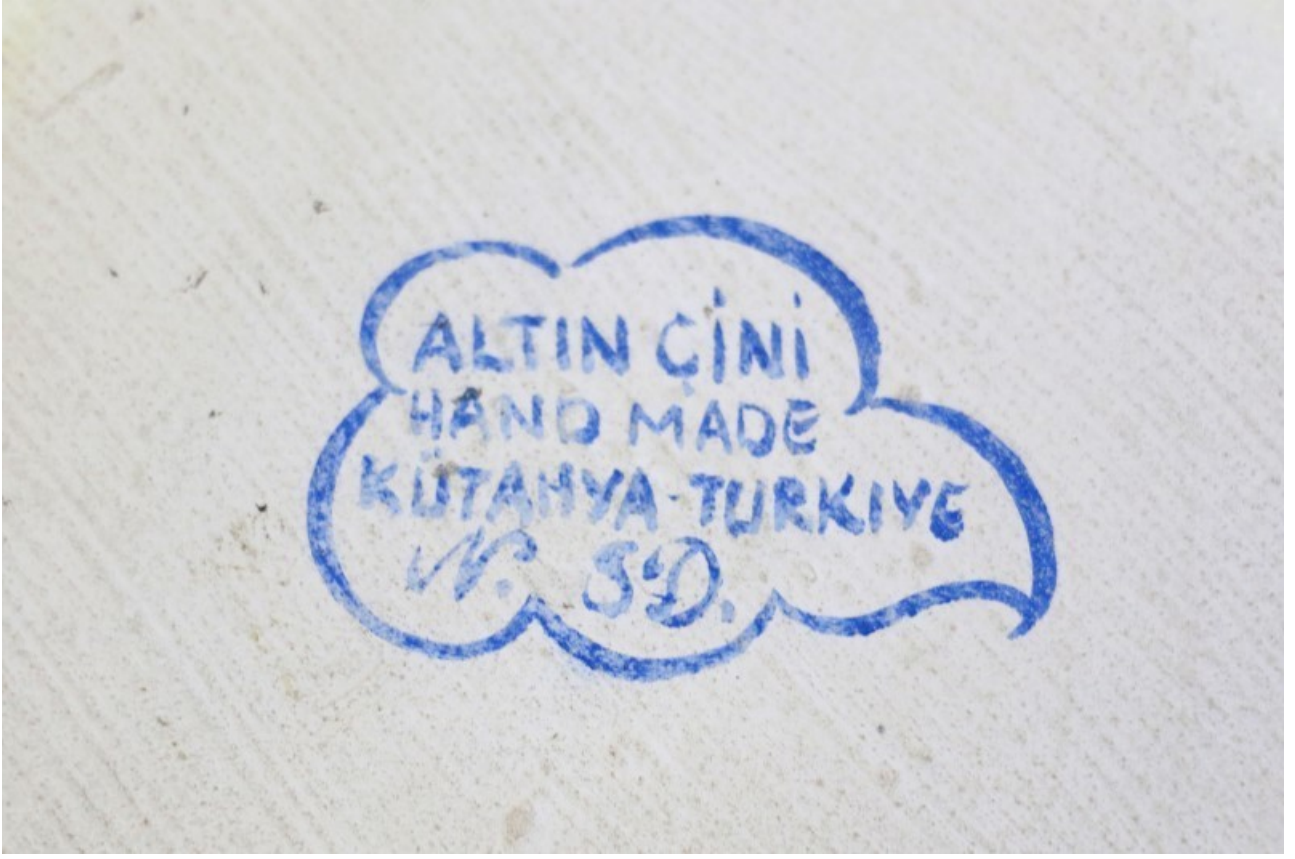 ALTIN ÇİNİ
HAND MADE
KÜTAHYA-TURKIYE
N. S.D.